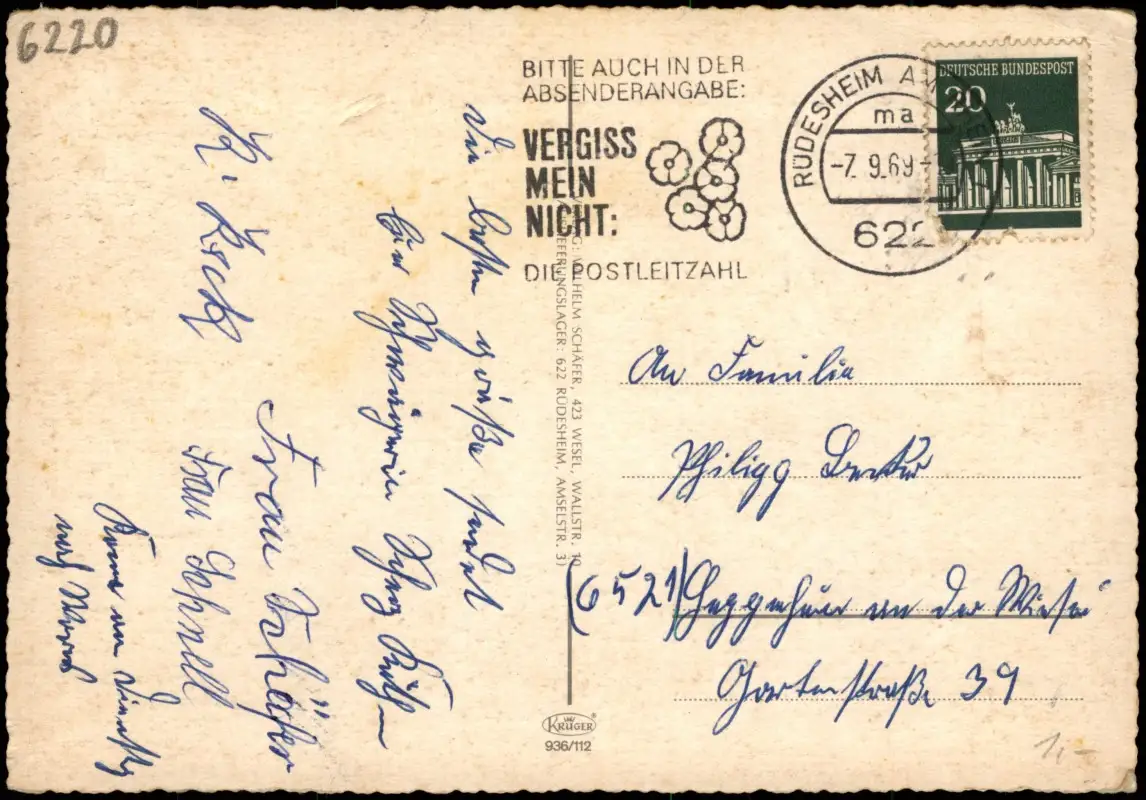 6220
BITTE AUCH IN DER
ABSENDERANGABE:
VERGISS
MEIN
NICHT:
DIE POSTLEITZAHL
RÜDESHEIM AM RHEIN
ma
-7. 9.69-
622
DEUTSCHE BUNDESPOST
20
WILHELM SCHÄFER, 423 WESEL, WALLSTR. 10
LIEFERUNGSLAGER: 622 RÜDESHEIM, AMSELSTR. 3
Die besten Grüße sendet
Frau Schäfer
Frau Schnell
Komme am Dienstag
nach
An Familie
Philipp
(6521) an der Wiese
Gartenstraße 39
KRÜGER
936/112
1,-